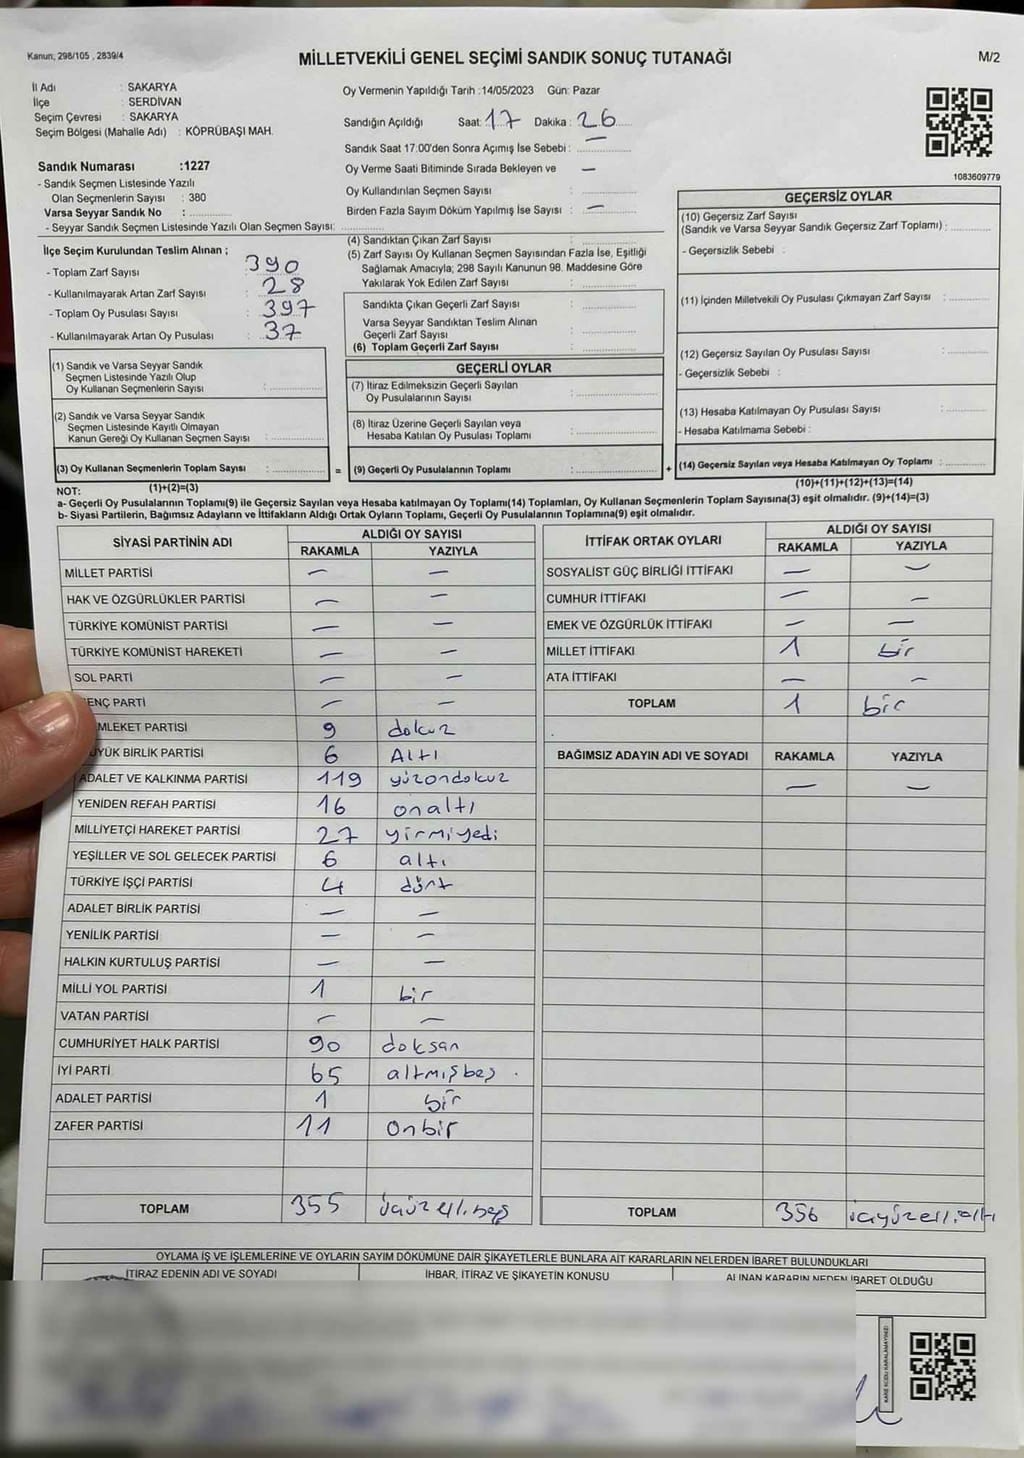 Kanun; 298/105 , 2839/4
MİLLETVEKİLİ GENEL SEÇİMİ SANDIK SONUÇ TUTANAĞI
M/2
İl Adı : SAKARYA
İlçe : SERDİVAN
Seçim Çevresi : SAKARYA
Seçim Bölgesi (Mahalle Adı) : KÖPRÜBAŞI MAH.
Sandık Numarası :1227
- Sandık Seçmen Listesinde Yazılı
Olan Seçmenlerin Sayısı : 380
Varsa Seyyar Sandık No :
- Seyyar Sandık Seçmen Listesinde Yazılı Olan Seçmen Sayısı:
Oy Vermenin Yapıldığı Tarih :14/05/2023 Gün: Pazar
Sandığın Açıldığı Saat: 17 Dakika : 26
Sandık Saat 17:00'den Sonra Açımış İse Sebebi : —
Oy Verme Saati Bitiminde Sırada Bekleyen ve —
Oy Kullandırılan Seçmen Sayısı :
Birden Fazla Sayım Döküm Yapılmış İse Sayısı : —
1083609779
İlçe Seçim Kurulundan Teslim Alınan ;
- Toplam Zarf Sayısı : 390
- Kullanılmayarak Artan Zarf Sayısı : 28
- Toplam Oy Pusulası Sayısı : 397
- Kullanılmayarak Artan Oy Pusulası : 37
(1) Sandık ve Varsa Seyyar Sandık
Seçmen Listesinde Yazılı Olup
Oy Kullanan Seçmenlerin Sayısı :
(2) Sandık ve Varsa Seyyar Sandık
Seçmen Listesinde Kayıtlı Olmayan
Kanun Gereği Oy Kullanan Seçmen Sayısı :
(3) Oy Kullanan Seçmenlerin Toplam Sayısı :
(1)+(2)=(3)
(4) Sandıktan Çıkan Zarf Sayısı :
(5) Zarf Sayısı Oy Kullanan Seçmen Sayısından Fazla İse, Eşitliği
Sağlamak Amacıyla; 298 Sayılı Kanunun 98. Maddesine Göre
Yakılarak Yok Edilen Zarf Sayısı :
Sandıkta Çıkan Geçerli Zarf Sayısı :
Varsa Seyyar Sandıktan Teslim Alınan
Geçerli Zarf Sayısı :
(6) Toplam Geçerli Zarf Sayısı :
GEÇERLİ OYLAR
(7) İtiraz Edilmeksizin Geçerli Sayılan
Oy Pusulalarının Sayısı :
(8) İtiraz Üzerine Geçerli Sayılan veya
Hesaba Katılan Oy Pusulası Toplamı :
= (9) Geçerli Oy Pusulalarının Toplamı :
GEÇERSİZ OYLAR
(10) Geçersiz Zarf Sayısı
(Sandık ve Varsa Seyyar Sandık Geçersiz Zarf Toplamı) :
- Geçersizlik Sebebi :
(11) İçinden Milletvekili Oy Pusulası Çıkmayan Zarf Sayısı :
(12) Geçersiz Sayılan Oy Pusulası Sayısı :
- Geçersizlik Sebebi :
(13) Hesaba Katılmayan Oy Pusulası Sayısı :
- Hesaba Katılmama Sebebi :
+ (14) Geçersiz Sayılan veya Hesaba Katılmayan Oy Toplamı :
(10)+(11)+(12)+(13)=(14)
NOT:
a- Geçerli Oy Pusulalarının Toplamı(9) ile Geçersiz Sayılan veya Hesaba katılmayan Oy Toplamı(14) Toplamları, Oy Kullanan Seçmenlerin Toplam Sayısına(3) eşit olmalıdır. (9)+(14)=(3)
b- Siyasi Partilerin, Bağımsız Adayların ve İttifakların Aldığı Ortak Oyların Toplamı, Geçerli Oy Pusulalarının Toplamına(9) eşit olmalıdır.
SİYASİ PARTİNİN ADI
ALDIĞI OY SAYISI
RAKAMLA YAZIYLA
MİLLET PARTİSİ — —
HAK VE ÖZGÜRLÜKLER PARTİSİ — —
TÜRKİYE KOMÜNİST PARTİSİ — —
TÜRKİYE KOMÜNİST HAREKETİ — —
SOL PARTİ — —
ENÇ PARTİ — —
MLEKET PARTİSİ 9 dokuz
ÜYÜK BİRLİK PARTİSİ 6 Altı
ADALET VE KALKINMA PARTİSİ 119 yüzondokuz
YENİDEN REFAH PARTİSİ 16 onaltı
MİLLİYETÇİ HAREKET PARTİSİ 27 yirmiyedi
YEŞİLLER VE SOL GELECEK PARTİSİ 6 altı
TÜRKİYE İŞÇİ PARTİSİ 4 dört
ADALET BİRLİK PARTİSİ — —
YENİLİK PARTİSİ — —
HALKIN KURTULUŞ PARTİSİ — —
MİLLİ YOL PARTİSİ 1 bir
VATAN PARTİSİ — —
CUMHURİYET HALK PARTİSİ 90 doksan
İYİ PARTİ 65 altmışbeş .
ADALET PARTİSİ 1 bir
ZAFER PARTİSİ 11 Onbir
TOPLAM 355 üçüzelli.beş
İTTİFAK ORTAK OYLARI
ALDIĞI OY SAYISI
RAKAMLA YAZIYLA
SOSYALİST GÜÇ BİRLİĞİ İTTİFAKI — —
CUMHUR İTTİFAKI — —
EMEK VE ÖZGÜRLÜK İTTİFAKI — —
MİLLET İTTİFAKI 1 bir
ATA İTTİFAKI — —
TOPLAM 1 bir
BAĞIMSIZ ADAYIN ADI VE SOYADI RAKAMLA YAZIYLA
— —
TOPLAM 356 üçyüzelli.altı
OYLAMA İŞ VE İŞLEMLERİNE VE OYLARIN SAYIM DÖKÜMÜNE DAİR ŞİKAYETLERLE BUNLARA AİT KARARLARIN NELERDEN İBARET BULUNDUKLARI
İTİRAZ EDENİN ADI VE SOYADI
İHBAR, İTİRAZ VE ŞİKAYETİN KONUSU
ALINAN KARARIN NEDEN İBARET OLDUĞU
KARE KODU KARALAMAYINIZ!